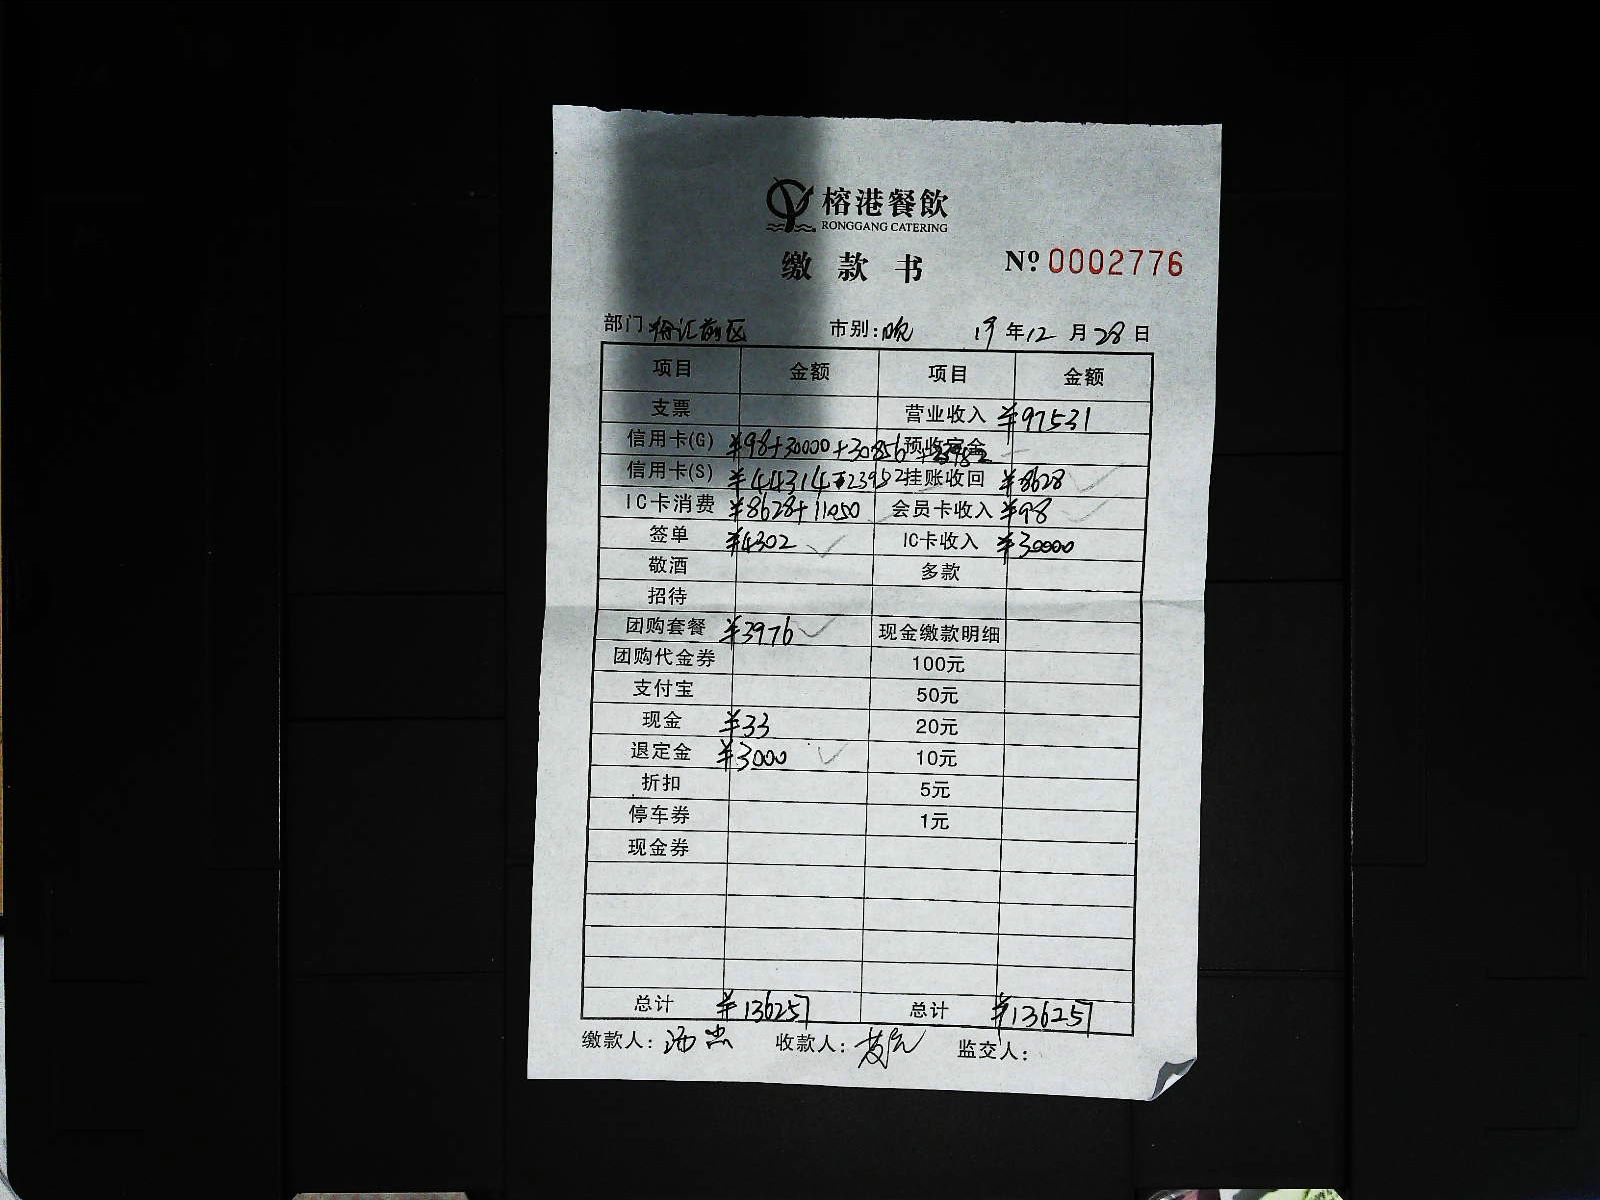 榕港餐飲
RONGGANG CATERING
缴款书 Nº 0002776
部门 汇前区 市别:晚 19年12月28日
项目 金额 项目 金额
支票 营业收入 ¥97531
信用卡(G) ¥98+30000+30856 预收定金
信用卡(S) ¥44314 挂账收回 ¥8628
IC卡消费 ¥8628+11050 会员卡收入 ¥98
签单 ¥4302 IC卡收入 ¥30000
敬酒 多款
招待
团购套餐 ¥3976 现金缴款明细
团购代金券 100元
支付宝 50元
现金 ¥33 20元
退定金 ¥3000 10元
折扣 5元
停车券 1元
现金券
总计 ¥136257 总计 ¥136257
缴款人: 收款人: 监交人: